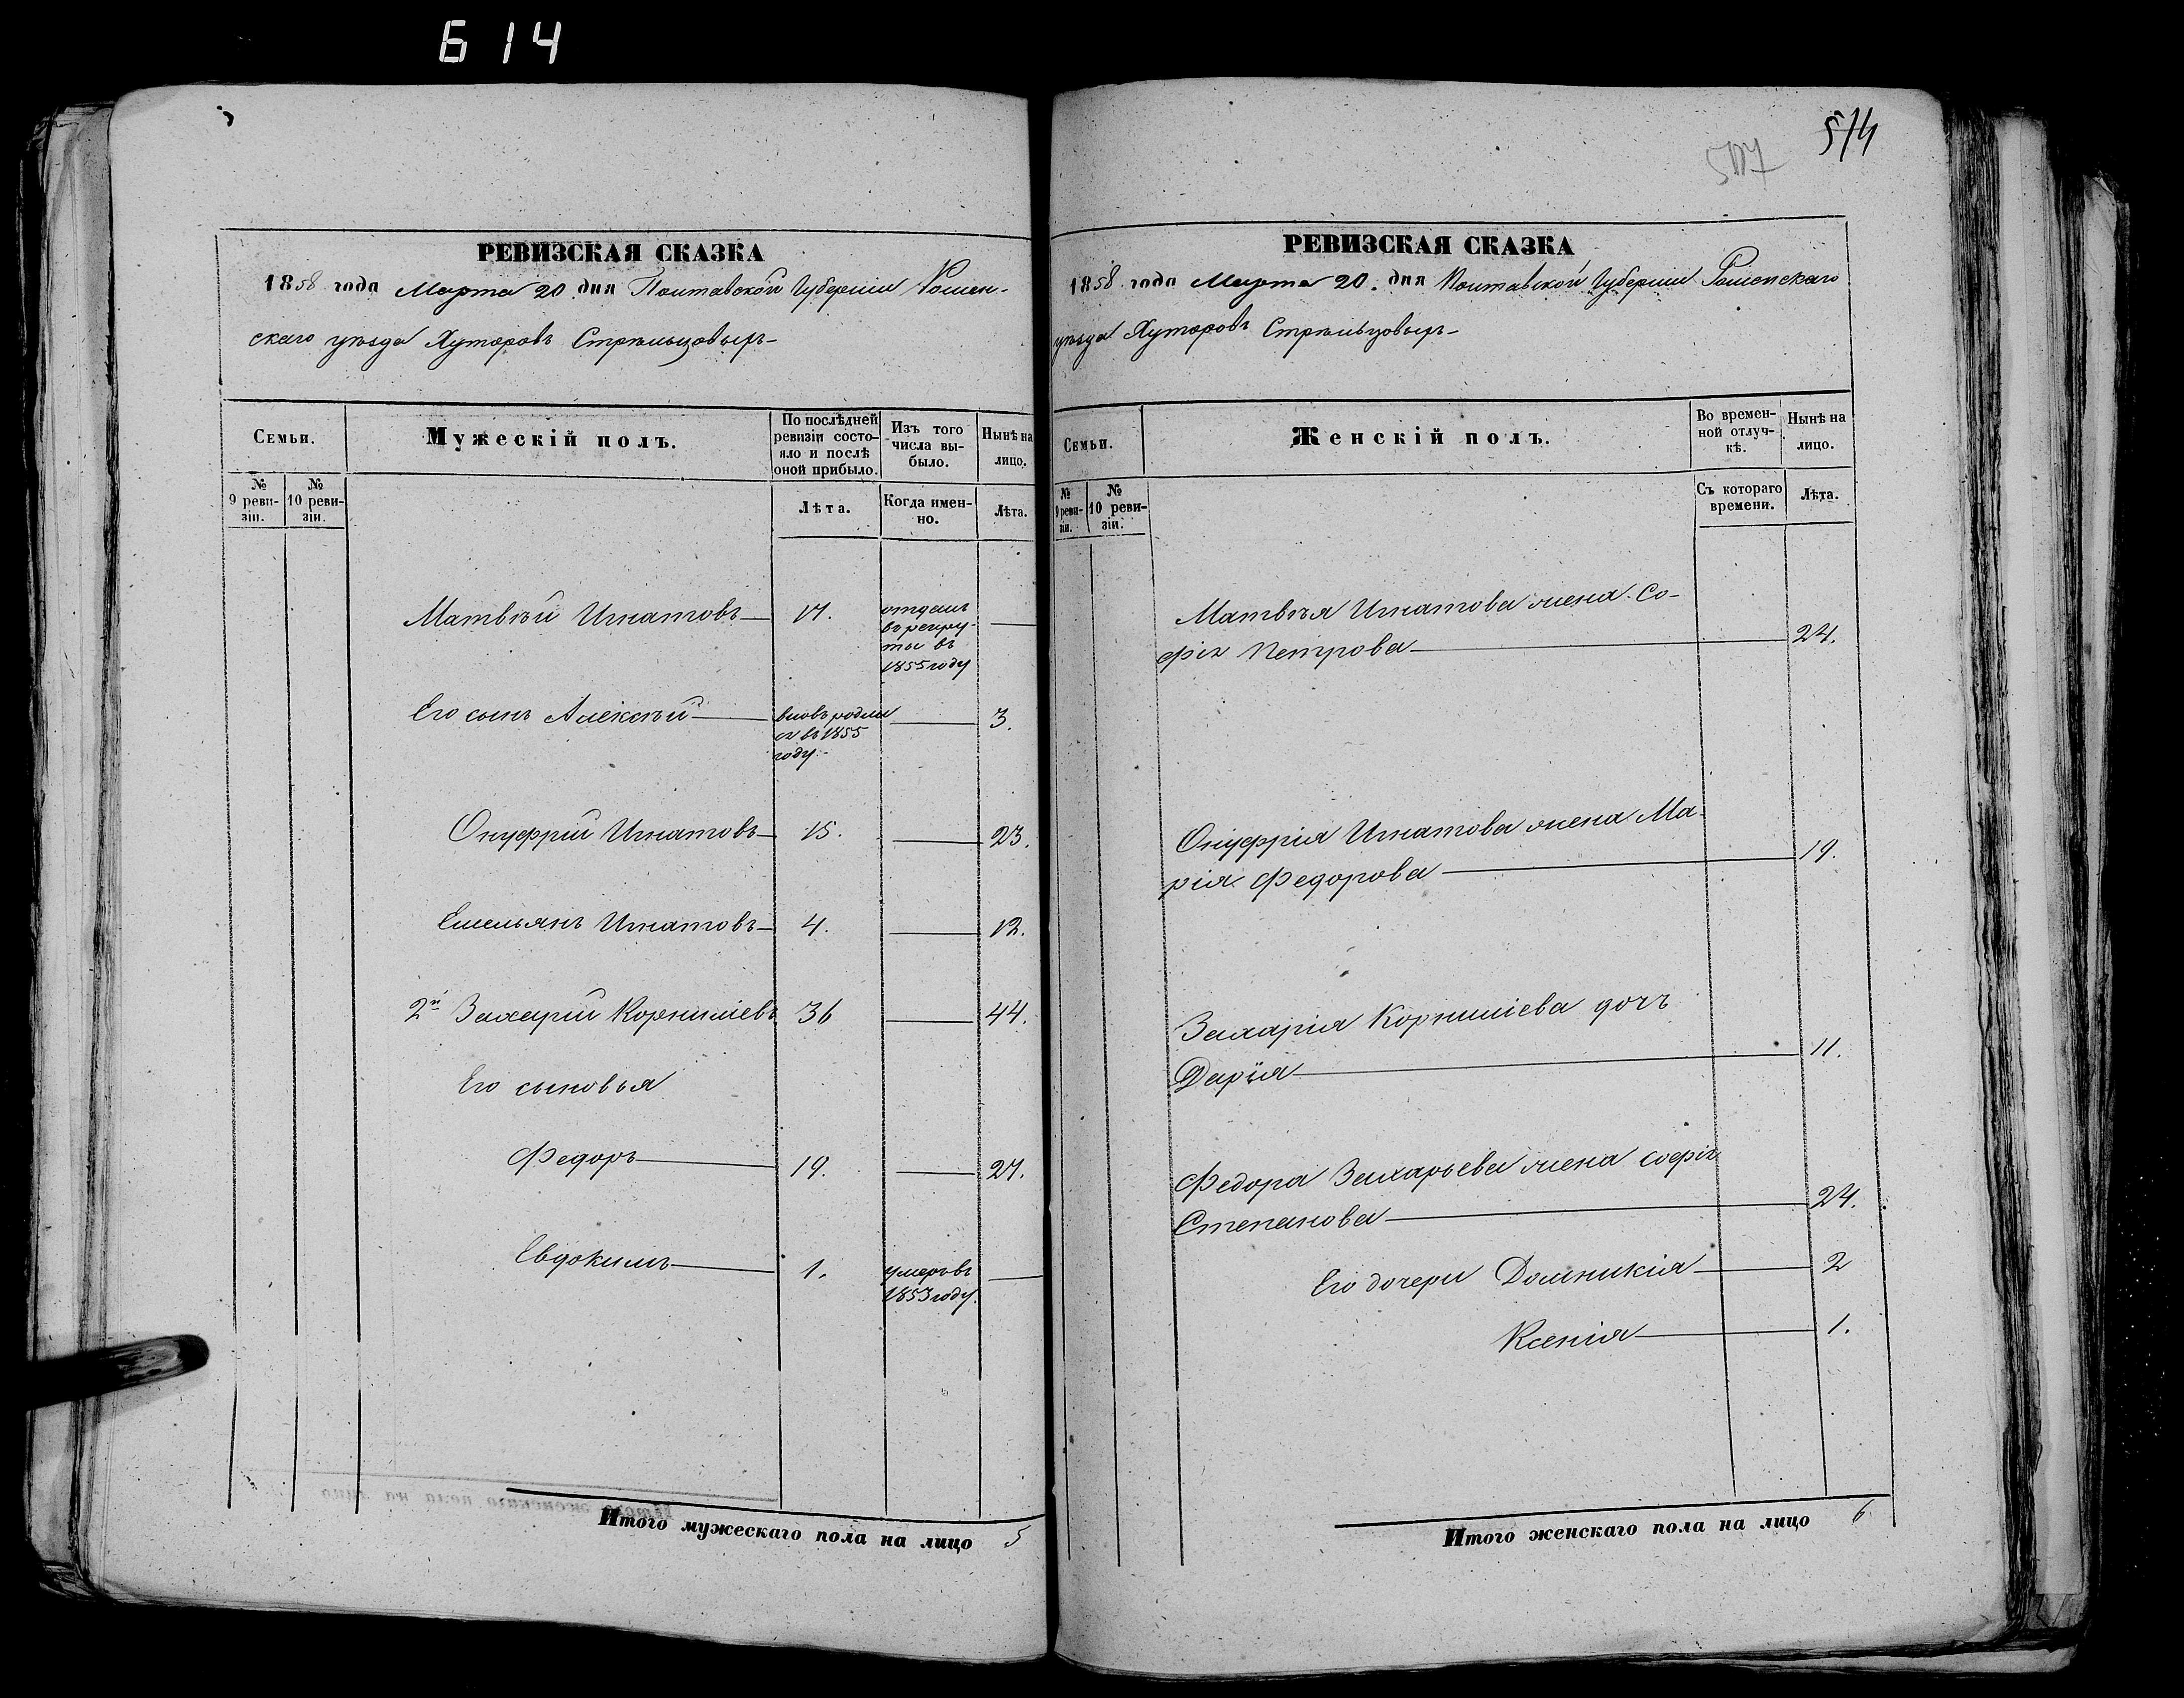 614
РЕВИЗСКАЯ СКАЗКА
1858 года Марта 20 дня Полтавской Губернии Ромен-
скаго уѣзда Хуторовъ Стрѣльцовыхъ
Семьи.
Мужескій полъ.
По послѣдней ревизіи состо-
яло и послѣ оной прибыло.
Изъ того числа вы-
было.
Нынѣ на лицо.
№ 9 реви-
зіи.
№ 10 реви-
зіи.
Лѣта.
Когда имен-
но.
Лѣта.
Матвѣй Игнатовъ 17. отданъ
въ рекру-
ты въ
1855 году
Его сынъ Алексѣй вновь родил
ся въ 1855
году. 3.
Онуфрій Игнатовъ 15. 23.
Емельянъ Игнатовъ 4. 12.
2й Захарій Корниліевъ 36 44.
Его сыновья
Федоръ 19. 27.
Евдокимъ 1. умеръ въ
1853 году.
Итого мужескаго пола на лицо 5
574
РЕВИЗСКАЯ СКАЗКА
1858 года Марта 20. дня Полтавской Губернии Роменскаго
уѣзда Хуторовъ Стрѣльцовыхъ
Семьи.
Женскій полъ.
Во времен-
ной отлуч-
кѣ.
Нынѣ на лицо.
№ 9 реви-
зіи.
№ 10 реви-
зіи.
Съ котораго времени.
Лѣта.
Матвѣя Игнатова жена Со-
фія Петрова 24.
Онуфрія Игнатова жена Ма-
рія Федорова 19.
Захарія Корниліева дочь
Дарія 11.
Федора Захарьева жена Софія
Степанова 24.
Его дочери Домникія 2
Ксенія 1.
Итого женскаго пола на лицо 6